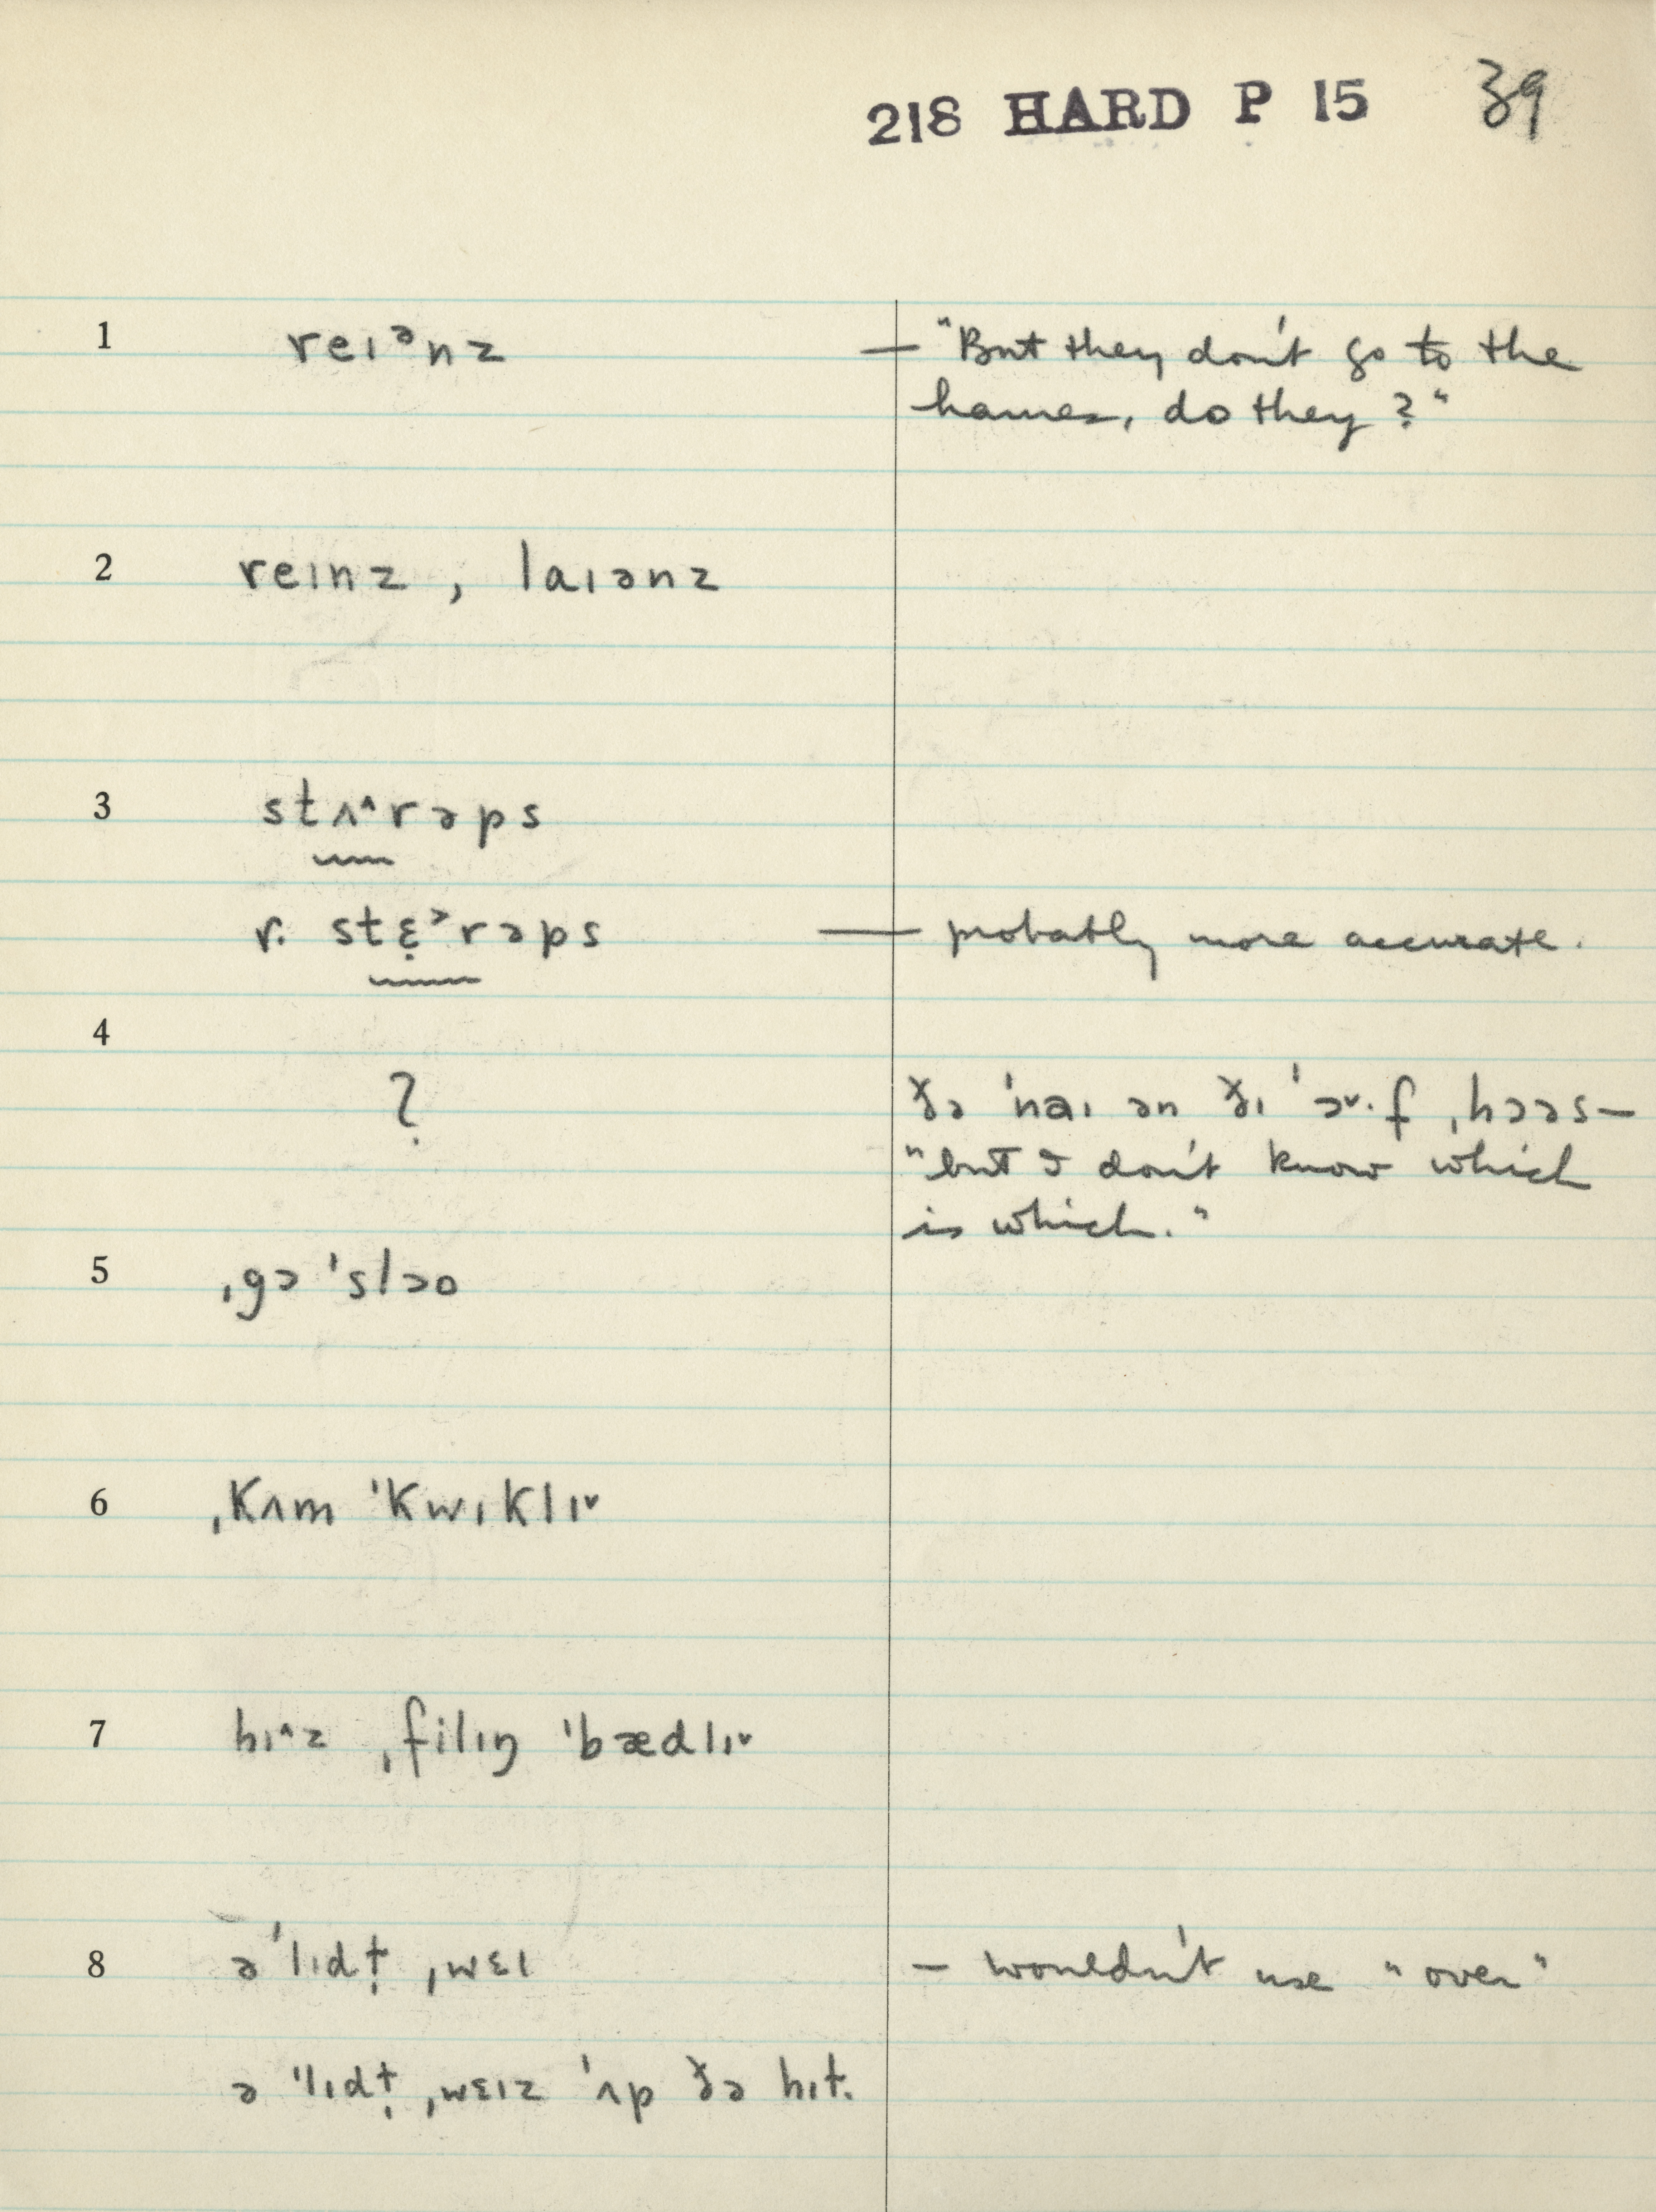 218 HARD P 15 39
1 reɪᵊnz — "But they don't go to the
hames, do they?"
2 reɪnz, laɪənz
3 stʌ˄rəps
r. stɛ̣˃rəps — probably more accurate.
4 ? ðə 'naɪ ən ðɪ 'ɔ˅·f ˌhɔəs—
"but I don't know which
is which."
5 ˌgɔ 'slɔo
6 ˌkʌm 'kwɪklɪ˅
7 hɪ˄z ˌfilɪŋ 'bædlɪ˅
8 ə 'lɪdḷ ˌwɛɪ — wouldn't use "over"
ə 'lɪdḷ ˌwɛɪz 'ʌp ðə hɪt.